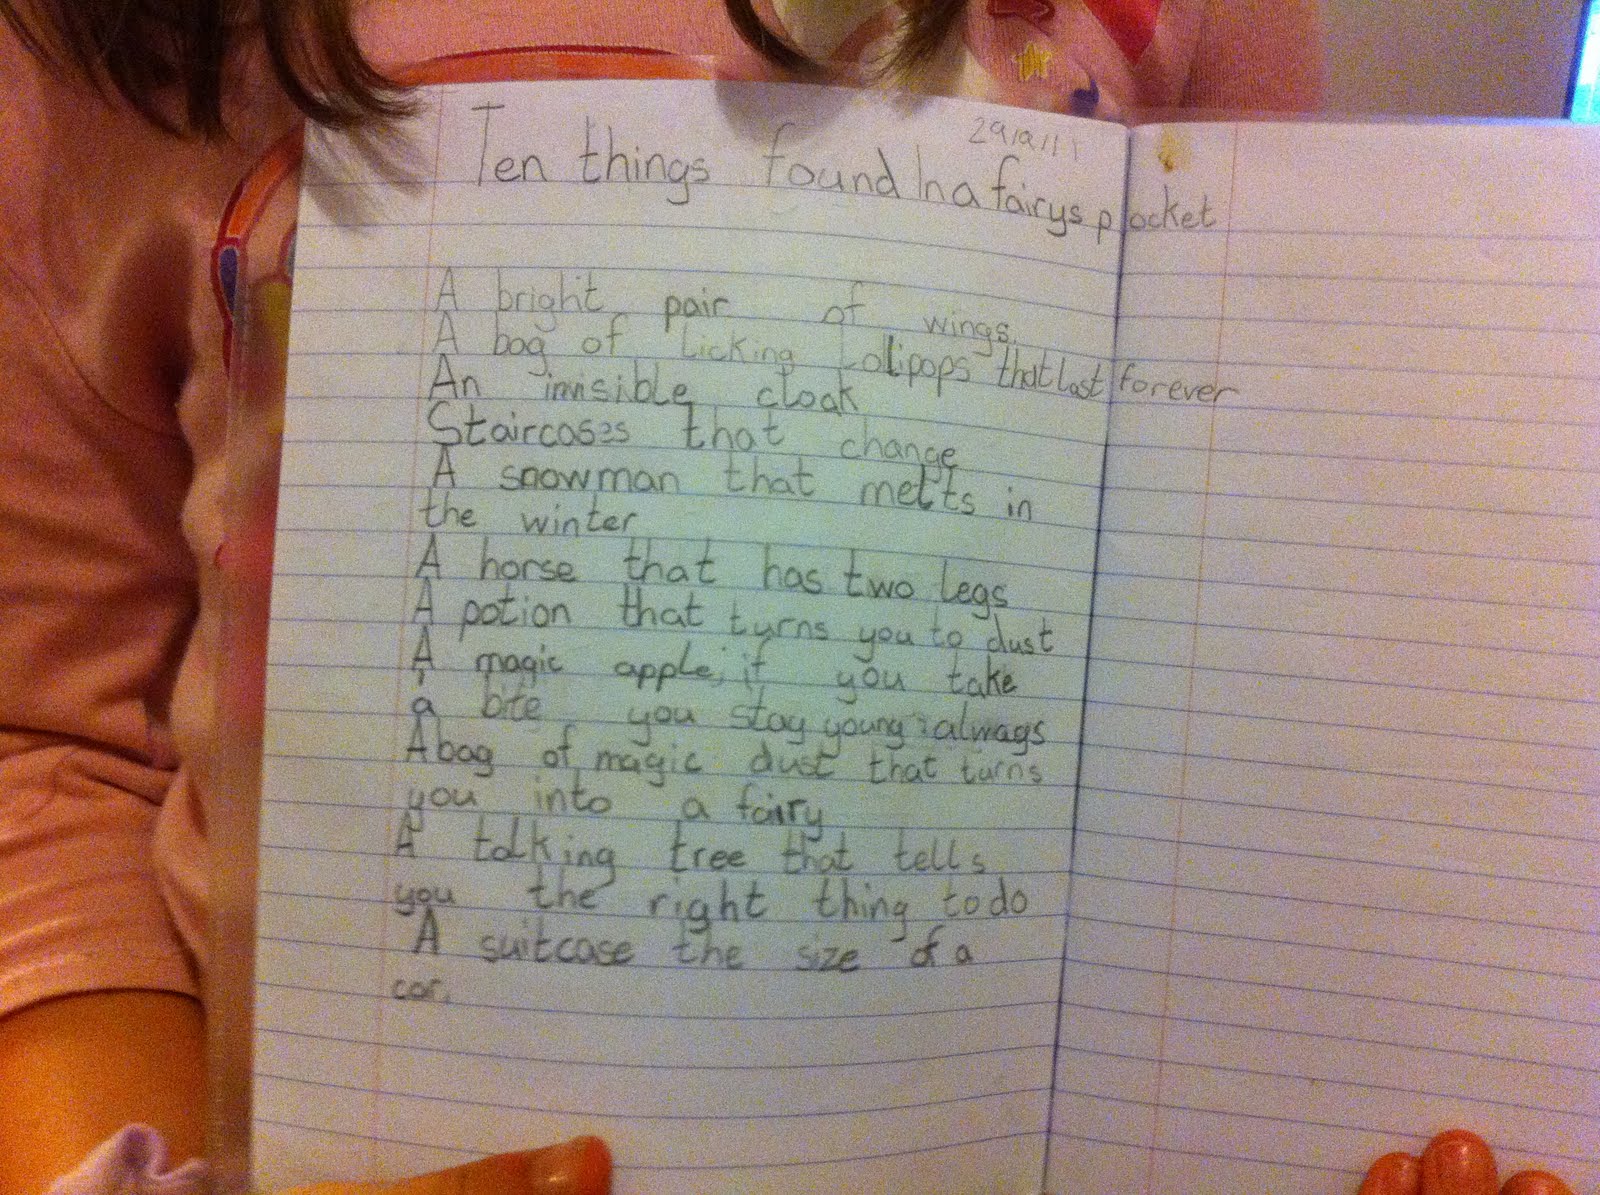 29/9/11
Ten things found In a fairys pocket
A bright pair of wings.
A bag of Licking Lollipops that last forever
An invisible cloak
Staircases that change
A snowman that melts in
the winter
A horse that has two legs
A potion that turns you to dust
A magic apple, if you take
a bite you stay young always
A bag of magic dust that turns
you into a fairy
A talking tree that tells
you the right thing to do
A suitcase the size of a
car.